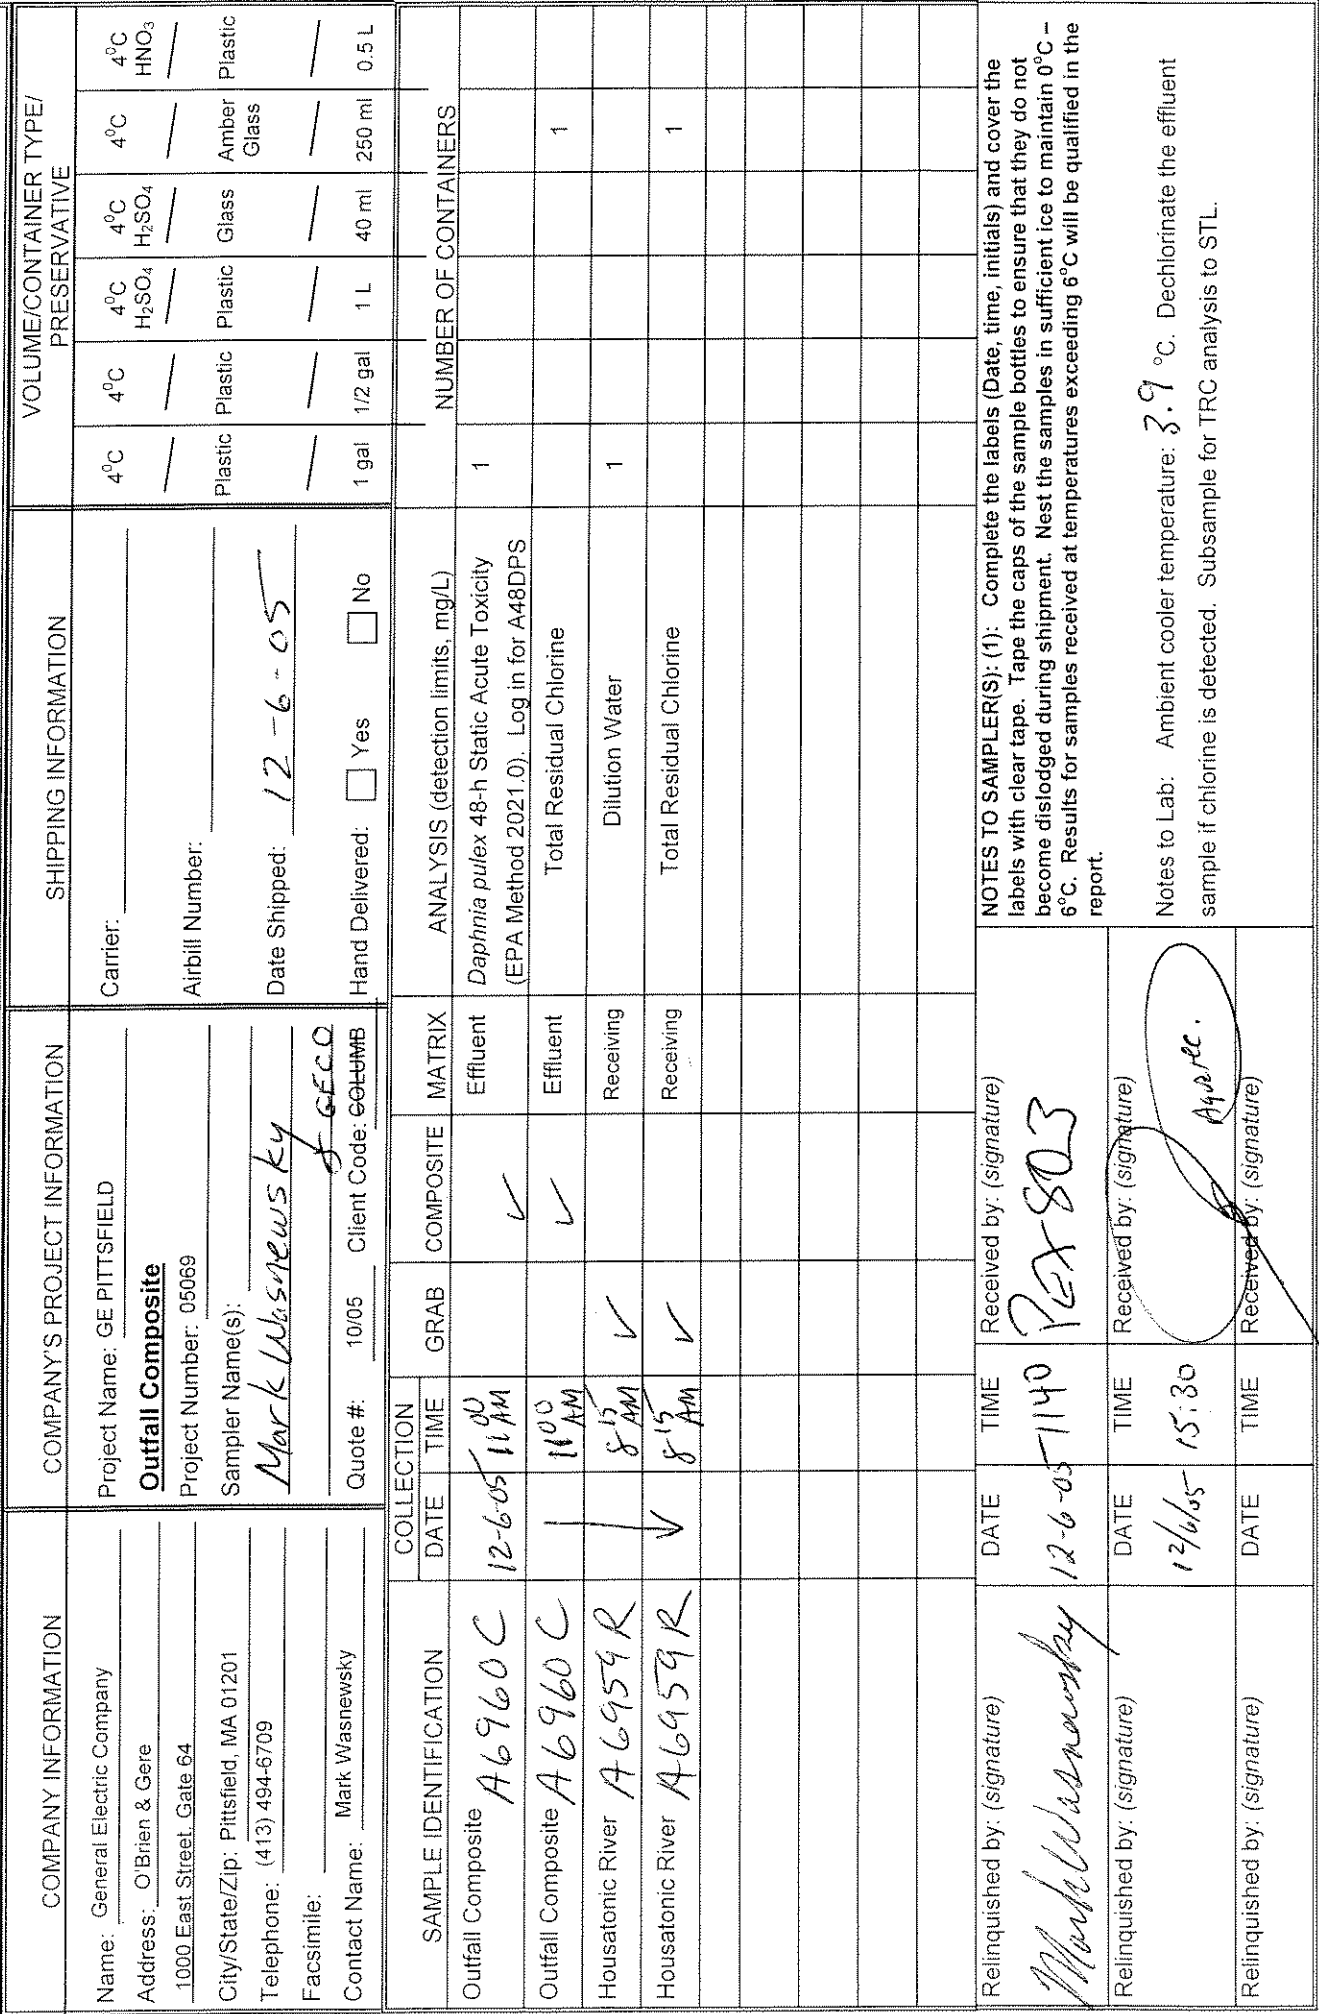 COMPANY INFORMATION
Name: General Electric Company
Address: O'Brien & Gere
1000 East Street, Gate 64
City/State/Zip: Pittsfield, MA 01201
Telephone: (413) 494-6709
Facsimile:
Contact Name: Mark Wasnewsky
COMPANY'S PROJECT INFORMATION
Project Name: GE PITTSFIELD
Outfall Composite
Project Number: 05069
Sampler Name(s):
Mark Wasnewsky
GECO
Quote #: 10/05 Client Code: COLUMB
SHIPPING INFORMATION
Carrier:
Airbill Number:
Date Shipped: 12-6-05
Hand Delivered: ☐ Yes ☐ No
VOLUME/CONTAINER TYPE/
PRESERVATIVE
4⁰C 4⁰C 4⁰C 4⁰C 4⁰C 4⁰C
H₂SO₄ H₂SO₄ HNO₃
/ / / / / /
Plastic Plastic Plastic Glass Amber Plastic
Glass
/ / / / / /
1 gal 1/2 gal 1 L 40 ml 250 ml 0.5 L
COLLECTION
SAMPLE IDENTIFICATION DATE TIME GRAB COMPOSITE MATRIX ANALYSIS (detection limits, mg/L) NUMBER OF CONTAINERS
Outfall Composite A6960C 12-6-05 11⁰⁰ AM ✓ Effluent Daphnia pulex 48-h Static Acute Toxicity 1
(EPA Method 2021.0). Log in for A48DPS
Outfall Composite A6960C 11⁰⁰ AM ✓ Effluent Total Residual Chlorine 1
Housatonic River A6959R 8¹⁵ AM ✓ Receiving Dilution Water 1
Housatonic River A6959R 8¹⁵ AM ✓ Receiving Total Residual Chlorine 1
Relinquished by: (signature) DATE TIME Received by: (signature)
Mark Wasnewsky 12-6-05 1140
Relinquished by: (signature) DATE TIME Received by: (signature)
12/6/05 15:30 Aquatec.
Relinquished by: (signature) DATE TIME Received by: (signature)
NOTES TO SAMPLER(S): (1): Complete the labels (Date, time, initials) and cover the
labels with clear tape. Tape the caps of the sample bottles to ensure that they do not
become dislodged during shipment. Nest the samples in sufficient ice to maintain 0⁰C –
6⁰C. Results for samples received at temperatures exceeding 6⁰C will be qualified in the
report.
Notes to Lab: Ambient cooler temperature: 3.9 °C. Dechlorinate the effluent
sample if chlorine is detected. Subsample for TRC analysis to STL.